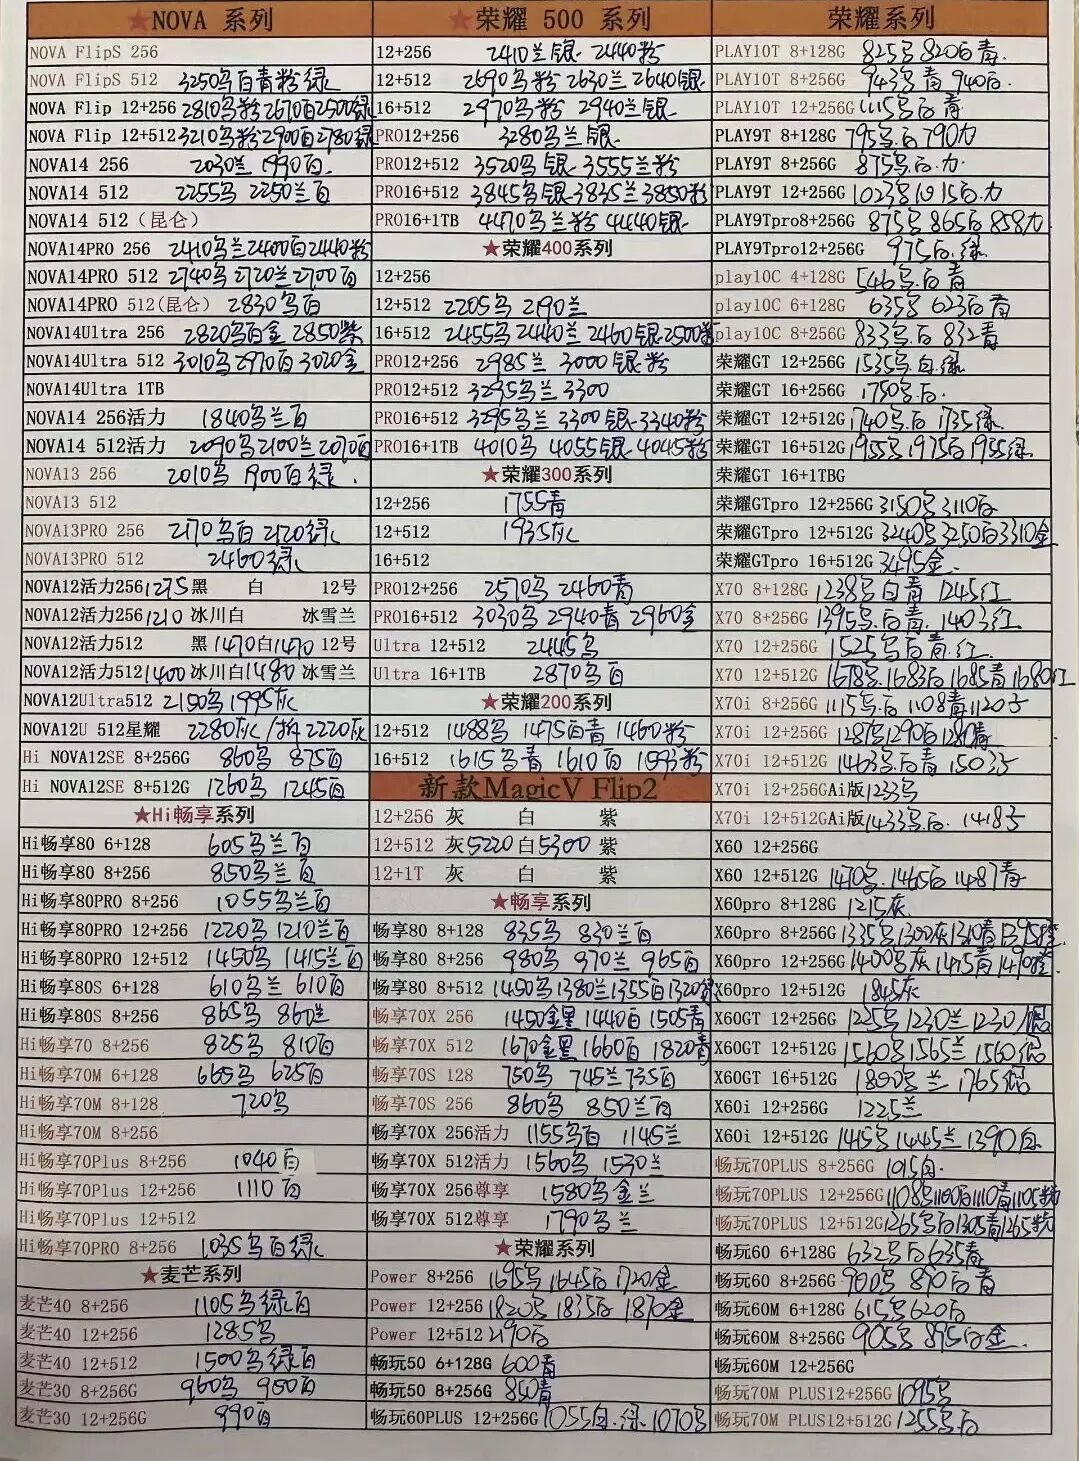 ★NOVA 系列
NOVA FlipS 256
NOVA FlipS 512 3250乌百青粉绿
NOVA Flip 12+256 2810乌粉2670百2500绿
NOVA Flip 12+512 3210乌粉2900百2780绿
NOVA14 256 2030兰 1990百
NOVA14 512 2255乌 2250兰百
NOVA14 512（昆仑）
NOVA14PRO 256 2410乌兰2400百2440粉
NOVA14PRO 512 2740乌 2720兰2700百
NOVA14PRO 512(昆仑) 2830乌百
NOVA14Ultra 256 2820乌百金 2850紫
NOVA14Ultra 512 3010乌2970百3020金
NOVA14Ultra 1TB
NOVA14 256活力 1840乌兰百
NOVA14 512活力 2090乌2100兰2070百
NOVA13 256 2010乌 1900百绿.
NOVA13 512
NOVA13PRO 256 2170乌百2120绿
NOVA13PRO 512 2460绿
NOVA12活力256 1275黑 白 12号
NOVA12活力256 1210 冰川白 冰雪兰
NOVA12活力512 黑1470白1470 12号
NOVA12活力512 1400 冰川白1480 冰雪兰
NOVA12Ultra512 2150乌1995灰
NOVA12U 512星耀 2280灰/拆2220灰
Hi NOVA12SE 8+256G 860乌 875百
Hi NOVA12SE 8+512G 1260乌 1245百
★Hi畅享系列
Hi畅享80 6+128 605乌兰百
Hi畅享80 8+256 850乌兰百
Hi畅享80PRO 8+256 1055乌兰百
Hi畅享80PRO 12+256 1220乌 1210兰百
Hi畅享80PRO 12+512 1450乌 1415兰百
Hi畅享80S 6+128 610乌兰 610百
Hi畅享80S 8+256 865乌 860兰
Hi畅享70 8+256 825乌 810百
Hi畅享70M 6+128 665乌 625百
Hi畅享70M 8+128 720乌
Hi畅享70M 8+256
Hi畅享70Plus 8+256 1040百
Hi畅享70Plus 12+256 1110百
Hi畅享70Plus 12+512
Hi畅享70PRO 8+256 1035乌百绿
★麦芒系列
麦芒40 8+256 1105乌绿百
麦芒40 12+256 1285乌
麦芒40 12+512 1500乌绿百
麦芒30 8+256G 960乌 950百
麦芒30 12+256G 990百
★荣耀 500 系列
12+256 2410兰银 2440粉
12+512 2690乌粉 2630兰 2640银
16+512 2970乌粉 2940兰银
PRO12+256 3280乌兰银
PRO12+512 3520乌银 3555兰粉
PRO16+512 3845乌银3835兰3850粉
PRO16+1TB 4470乌兰粉 4440银
★荣耀400系列
12+256
12+512 2205乌 2190兰
16+512 2455乌2440兰 2460银2500粉
PRO12+256 2985兰 3000银粉
PRO12+512 3295乌兰 3300
PRO16+512 3295乌兰 3300银3340粉
PRO16+1TB 4010乌 4055银 4045粉
★荣耀300系列
12+256 1755青
12+512 1935灰
16+512
PRO12+256 2570乌 2460青
PRO16+512 3030乌 2940青 2960金
Ultra 12+512 2445乌
Ultra 16+1TB 2870乌百
★荣耀200系列
12+512 1488乌 1475百青 1460粉
16+512 1615乌青 1610百 1593粉
新款MagicV Flip2
12+256 灰 白 紫
12+512 灰5220白5300 紫
12+1T 灰 白 紫
★畅享系列
畅享80 8+128 835乌 830兰百
畅享80 8+256 980乌 970兰 965百
畅享80 8+512 1450乌1380兰1355百1320绿
畅享70X 256 1450金黑 1440百 1505青
畅享70X 512 1670金黑 1660百 1820青
畅享70S 128 750乌 745兰735百
畅享70S 256 860乌 850兰百
畅享70X 256活力 1155乌百 1145兰
畅享70X 512活力 1560乌 1530兰
畅享70X 256尊享 1580乌金兰
畅享70X 512尊享 1790乌兰
★荣耀系列
Power 8+256 1695乌 1645百 1720金
Power 12+256 1820乌 1835百 1870金
Power 12+512 2190百
畅玩50 6+128G 600青
畅玩50 8+256G 850青
畅玩60PLUS 12+256G 1055白.绿 1070乌
荣耀系列
PLAY10T 8+128G 825乌 820百青.
PLAY10T 8+256G 943乌青 940百
PLAY10T 12+256G 1115乌百青
PLAY9T 8+128G 795乌.百790力
PLAY9T 8+256G 875乌百.力
PLAY9T 12+256G 1023乌1015百.力
PLAY9Tpro8+256G 875乌865百858力
PLAY9Tpro12+256G 975百.绿
play10C 4+128G 546乌.百青
play10C 6+128G 635乌 623百青
play10C 8+256G 833乌.百 832青
荣耀GT 12+256G 1535乌.白.绿
荣耀GT 16+256G 1750乌.百.
荣耀GT 12+512G 1740乌.百 1735绿
荣耀GT 16+512G 1955乌1975百1955绿
荣耀GT 16+1TBG
荣耀GTpro 12+256G 3150乌3110百
荣耀GTpro 12+512G 3240乌3250百3310金
荣耀GTpro 16+512G 3495金.
X70 8+128G 1238乌白青 1245红
X70 8+256G 1395乌.百青. 1403红
X70 12+256G 1525乌百青.红
X70 12+512G 1678乌.1683百1685青1680红
X70i 8+256G 1115乌.百1108青1120
X70i 12+256G 1287乌1290百1280青
X70i 12+512G 1463乌.百青
X70i 12+256GAi版1233乌
X70i 12+512GAi版1433乌.百.
X60 12+256G
X60 12+512G 1470乌.1465百1487青
X60pro 8+128G 1215灰
X60pro 8+256G 1335乌1300灰1310青
X60pro 12+256G 1400乌灰1415青
X60pro 12+512G 1845灰
X60GT 12+256G 1225乌1230兰1230银
X60GT 12+512G 1560乌1565兰1560银
X60GT 16+512G 1800乌兰1765银
X60i 12+256G 1225兰
X60i 12+512G 1415乌1445兰1390白
畅玩70PLUS 8+256G 1015白.
畅玩70PLUS 12+256G
畅玩70PLUS 12+512G1265乌百1305青
畅玩60 6+128G 632乌百635青
畅玩60 8+256G 900乌 890百青
畅玩60M 6+128G 615乌620百
畅玩60M 8+256G 905乌 895百金.
畅玩60M 12+256G
畅玩70M PLUS12+256G 1095乌
畅玩70M PLUS12+512G 1255乌百